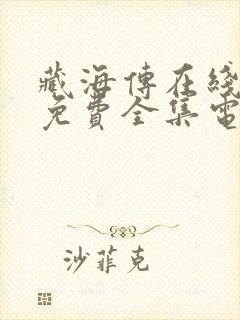 藏海傳在綫
免費全集電
沙菲克